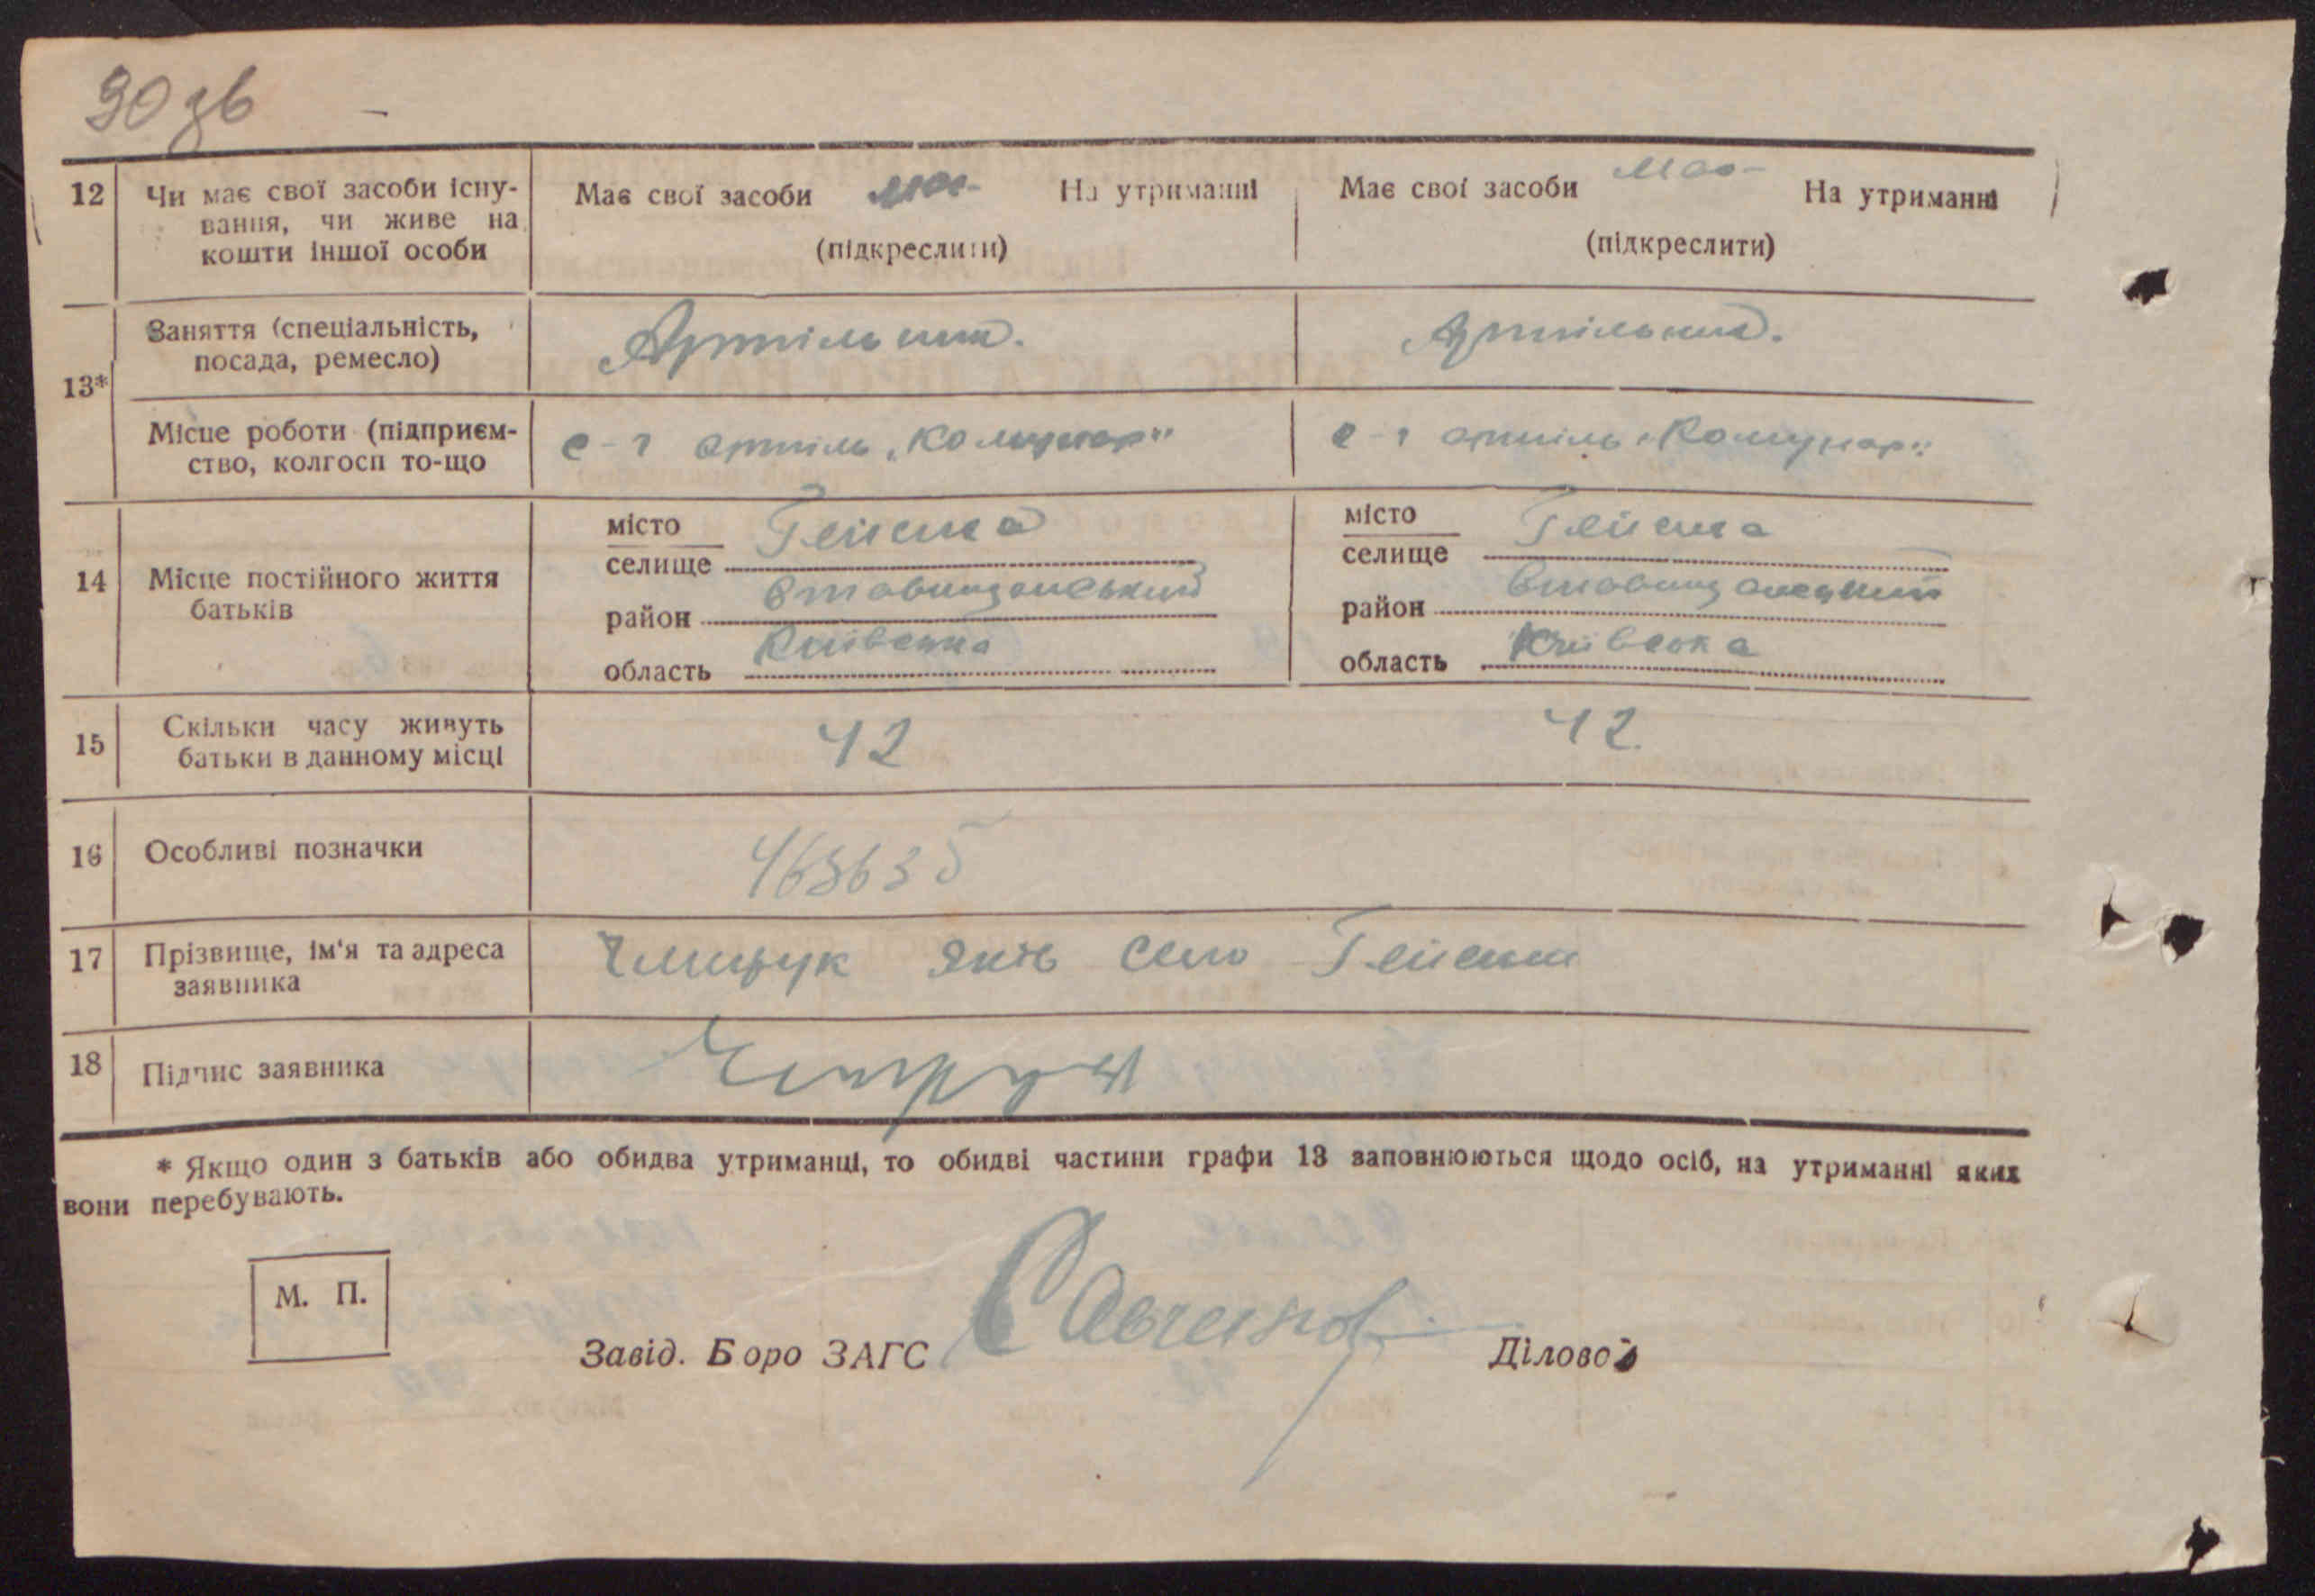 90 зв
12 Чи має свої засоби існу- Має свої засоби має На утриманні Має свої засоби має На утриманні
вання, чи живе на
кошти іншої особи (підкреслити) (підкреслити)
13* Заняття (спеціальність, Артільний. Артільний.
посада, ремесло)
Місце роботи (підприєм- с-г артіль „Комунар" с-г артіль „Комунар"
ство, колгосп то-що
14 Місце постійного життя місто Гейсиха місто Гейсиха
батьків селище селище
район Ставищанський район Ставищанський
область Київська область Київська
15 Скільки часу живуть 42 42
батьки в данному місці
16 Особливі позначки 463635
17 Прізвище, ім'я та адреса Яків село
заявника
18 Підпис заявника
* Якщо один з батьків або обидва утриманці, то обидві частини графи 13 заповнюються щодо осіб, на утриманні яких
вони перебувають.
М. П.
Завід. Боро ЗАГС Діловод